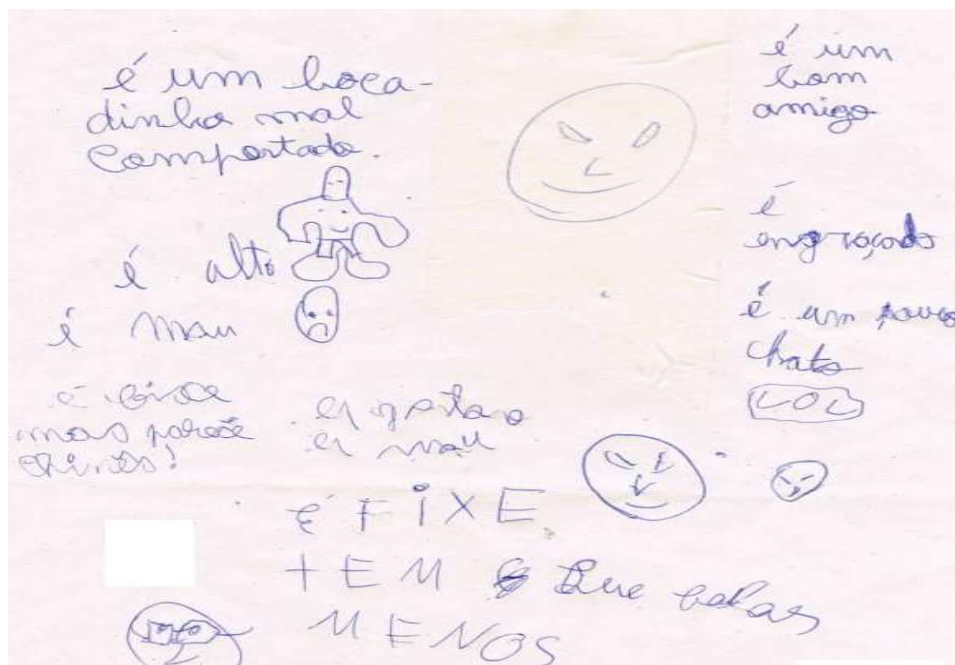 é um boca-
dinho mal
comportado.
é alto
é mau
é fixe
mas parece
chinês!
és mau
é FIXE
TEM Que
MENOS
é um
bom
amigo
é
engraçado
é um pouco
chato
LOL